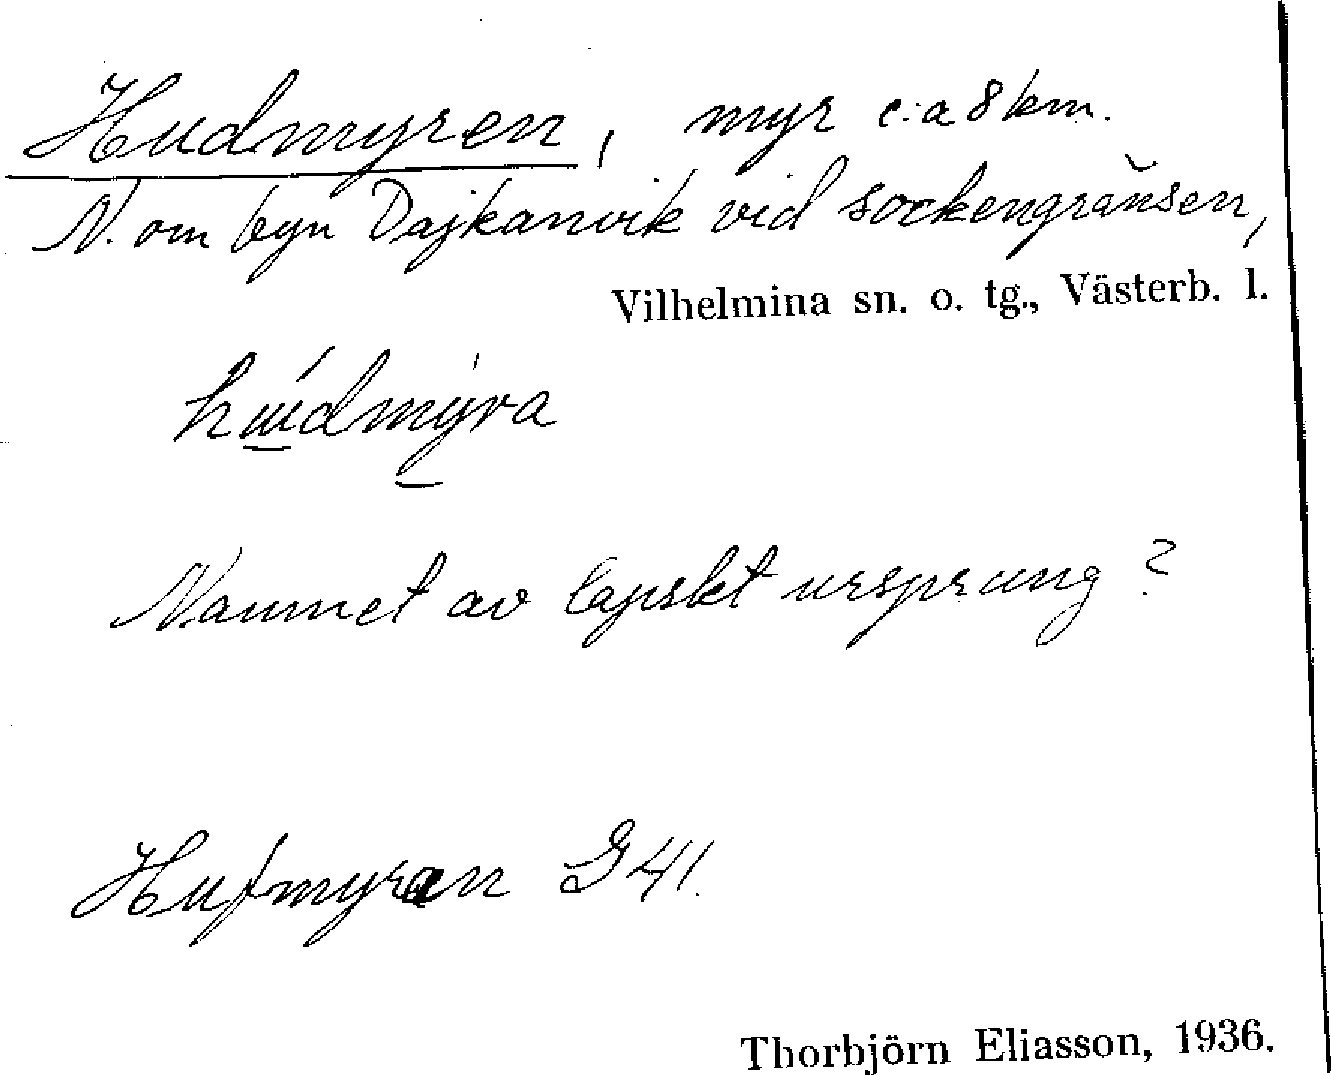 Hudmyren, myr c:a 8 km.
N. om byn Dajkanvik vid sockengränsen,
Vilhelmina sn. o. tg., Västerb. l.
húdmyra
Namnet av lapskt ursprung?
Hufmyran G 41.
Thorbjörn Eliasson, 1936.